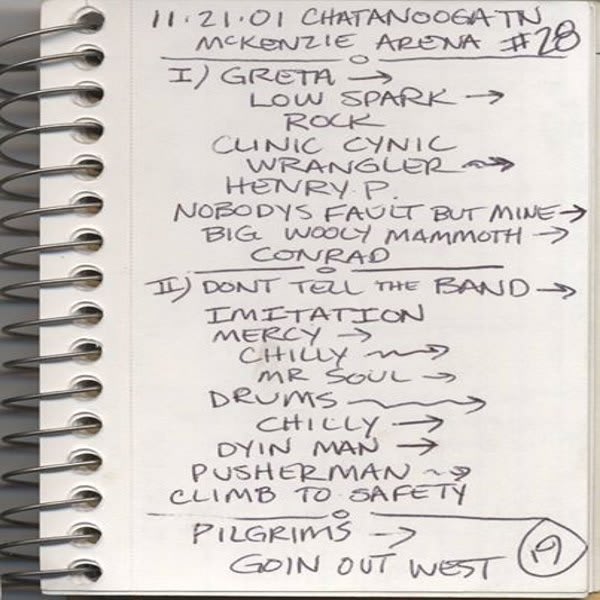 11·21·01 CHATANOOGA TN
MCKENZIE ARENA #28
I) GRETA →
LOW SPARK →
ROCK
CLINIC CYNIC
WRANGLER →
HENRY P.
NOBODYS FAULT BUT MINE →
BIG WOOLY MAMMOTH →
CONRAD
II) DONT TELL THE BAND →
IMITATION
MERCY →
CHILLY →
MR SOUL →
DRUMS →
CHILLY →
DYIN MAN →
PUSHERMAN →
CLIMB TO SAFETY
PILGRIMS →
GOIN OUT WEST